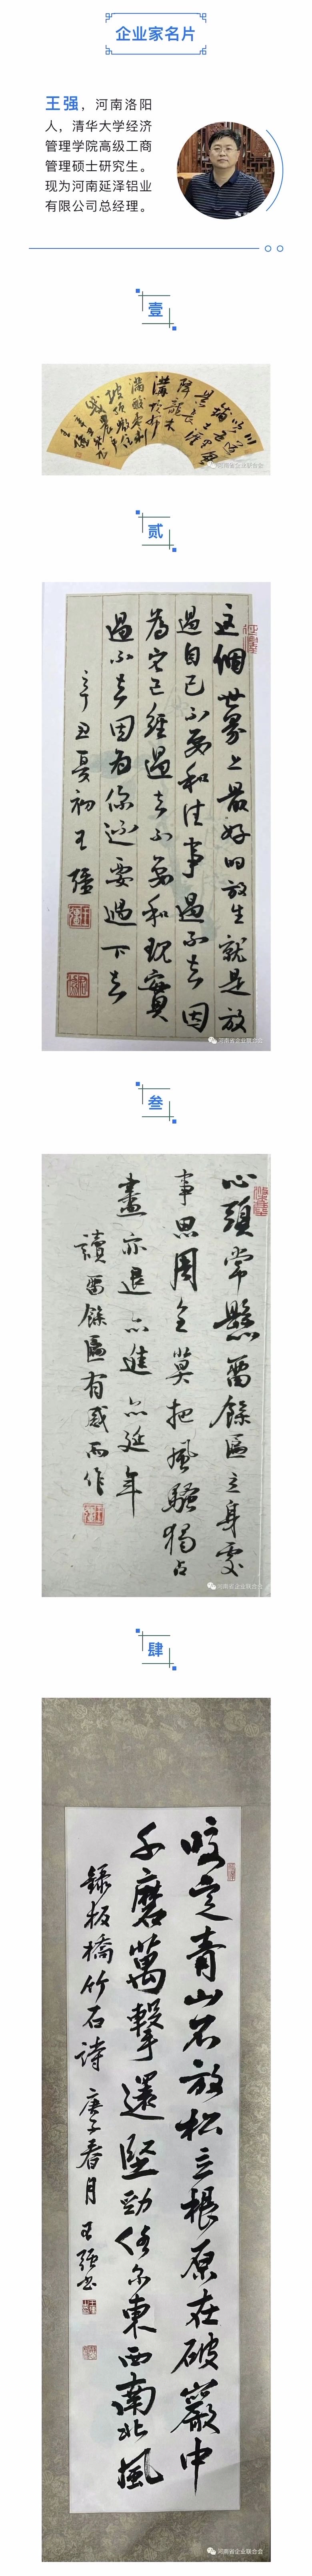 企业家名片
王强，河南洛阳
人，清华大学经济
管理学院高级工商
管理硕士研究生。
现为河南延泽铝业
有限公司总经理。
壹
河南省企业联合会
贰
这個世界上最好的放生就是放
過自己不要和往事過不去因
為它已經過去不要和現實
過不去因为你还要過下去
辛丑夏初王強
河南省企业联合会
叁
心頭常懸留餘匾立身處
事思周全莫把風騷獨占
盡亦退亦進亦延年
讀留餘匾有感而作
河南省企业联合会
肆
咬定青山不放松立根原在破巖中
千磨萬擊還堅勁任尔東西南北風
録板橋竹石诗 庚子春月 王强书
河南省企业联合会